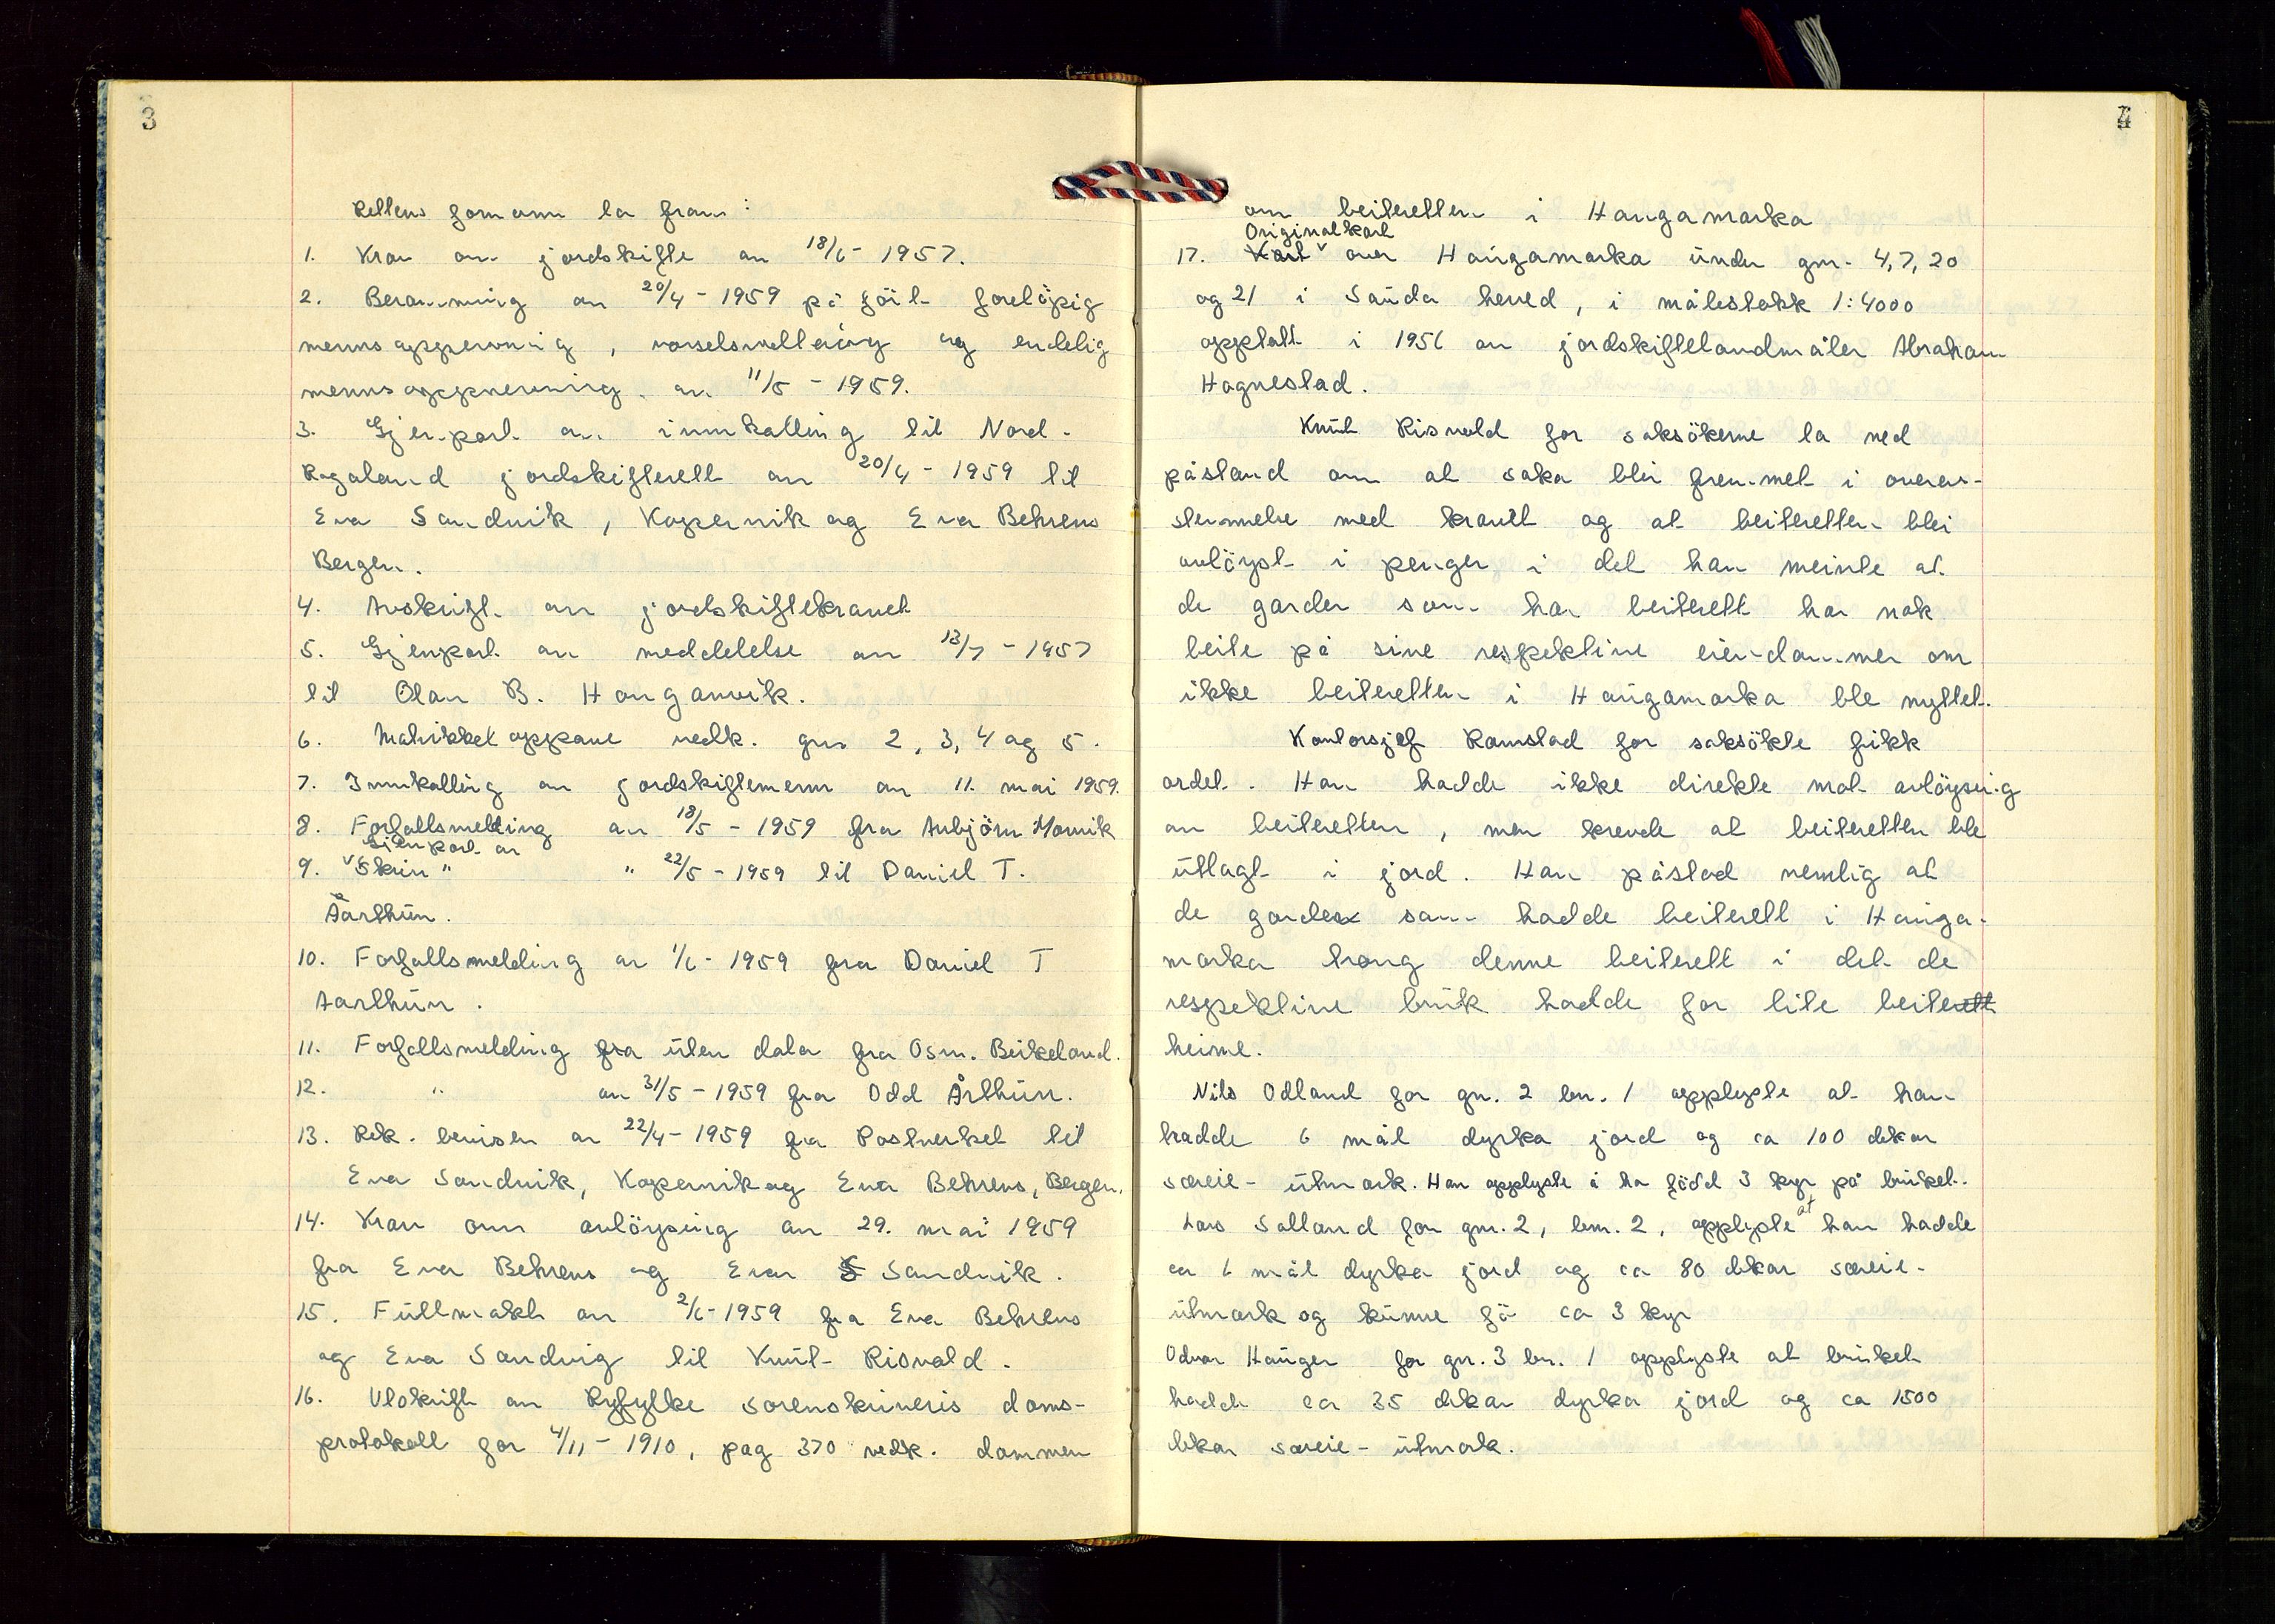 3
Rettens formann la fram:
1. Krav om jordskifte av 18/6- 1957.
2. Beramming av 20/4 - 1959 på föil forelöpig
mennsoppnevning, varselsmelding og endelig
mennsoppnevning. av. 11/5 - 1959.
3. Gjenpart av innkalling til Nord-
Rogaland jordskifterett av 20/4 - 1959 til
Eva Sandvik, Kopervik og Eva Behrens
Bergen.
4. Avskrift av jordskiftekravet
5. Gjenpart av meddelelse av 13/7 - 1957
til Olav B. Hauganvik.
6. Matrikkeloppgave vedk. gnr 2, 3, 4 og 5.
7. Innkalling av jordskiftemenn av 11. mai 1959.
8. Forfallsmelding av 18/5 - 1959 fra Anbjörn Morvik
Gjenpart av
9. Skriv " " 22/5 - 1959 til Daniel T.
Aarthun.
10. Forfallsmelding av 1/6- 1959 fra Daniel T
Aarthun.
11. Forfallsmelding fra uten dato fra Osm. Birkeland.
12. " av 31/5 - 1959 fra Odd Årthun.
13. Rek. beviser av 22/4- 1959 fra Postverket til
Eva Sandvik, Kopervik og Eva Behrens, Bergen.
14. Krav om avlöysing av 29. mai 1959
fra Eva Behrens og Eva S Sandvik.
15. Fullmakt av 2/6- 1959 fra Eva Behrens
og Eva Sandvig til Knut Risvold.
16. Utskrift av Ryfylke sorenskriveris doms-
protokoll for 4/11 - 1910, pag 370 vedk. dommen
4
om beiteretten i Haugamarka
Originalkart
17. Kart over Haugamarka under gnr. 4, 7, 20
og 21 i Sauda herred, i målestokk 1:4000
opptatt i 1956 av jordskiftelandmåler Abraham
Hognestad.
Knut Risvold for saksökerne la ned
påstand om at saka blei fremmet i overens-
stemmelse med kravet og at beiteretten blei
avlöyst i penger i det han meinte at
de garder som har beiterett har nok
beite på sine respektive eiendommer om
ikke beiteretten i Haugamarka ble nyttet.
Kontorsjef Ramstad for saksökte fikk
ordet. Han hadde ikke direkte mot avlöysing
av beiteretten, men krevde at beiteretten ble
utlagt i jord. Han påstod nemlig at
de garder som hadde beiterett i Hauga-
marka trong denne beiterett i det de
respektive bruk hadde for lite beiterett
heime.
Nils Odland for gn. 2 bn. 1 opplyste at han
hadde 6 mål dyrka jord og ca 100 dekar
særeie- utmark. Han opplyste å ha född 3 kyr på bruket.
Lars Salland for gnr. 2, bnr. 2, opplyste at han hadde
ca 6 mål dyrka jord og ca 80 dekar særeie-
utmark og kunne fö ca 3 kyr
Odvar Hauger for gn. 3 bn. 1 opplyste at bruket
hadde ca 35 dekar dyrka jord og ca 1500
dekar særeie- utmark.